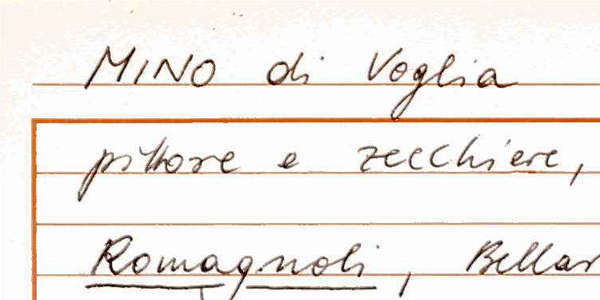 MINO di Voglia
pittore e zecchiere,
Romagnoli, Bellar